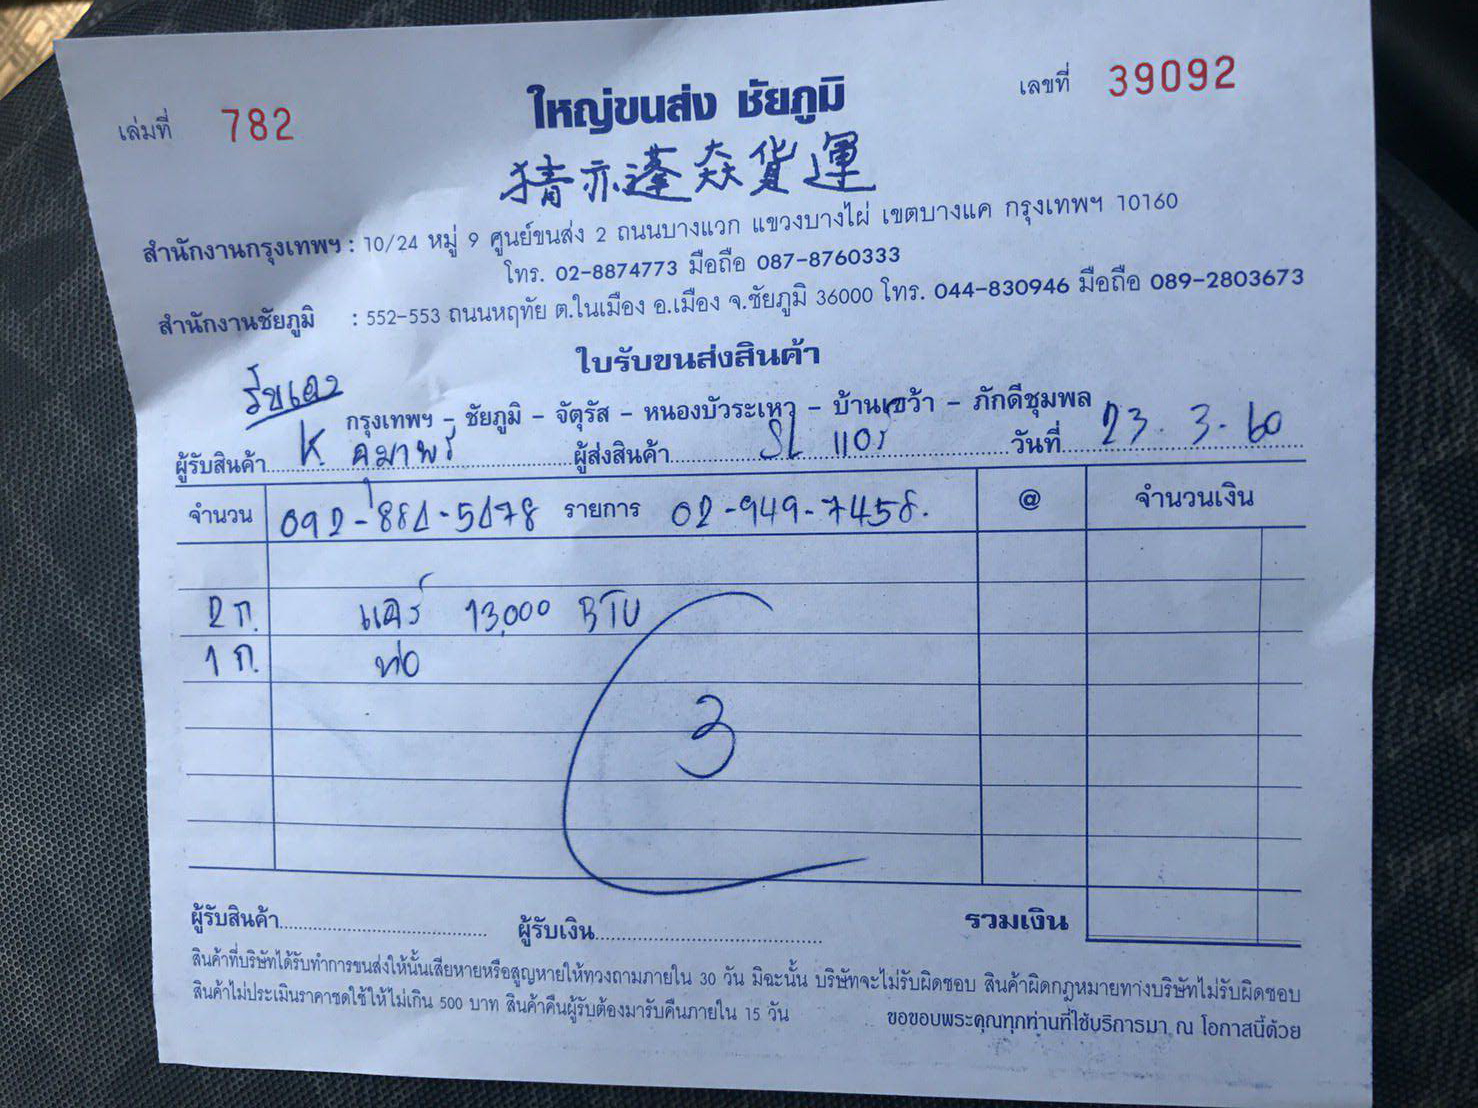 เล่มที่ 782
ใหญ่ขนส่ง ชัยภูมิ
เลขที่ 39092
猜亦蓬焱貨運
สำนักงานกรุงเทพฯ : 10/24 หมู่ 9 ศูนย์ขนส่ง 2 ถนนบางแวก แขวงบางไผ่ เขตบางแค กรุงเทพฯ 10160
โทร. 02-8874773 มือถือ 087-8760333
สำนักงานชัยภูมิ : 552-553 ถนนหฤทัย ต.ในเมือง อ.เมือง จ.ชัยภูมิ 36000 โทร. 044-830946 มือถือ 089-2803673
ใบรับขนส่งสินค้า
รับเอง
กรุงเทพฯ - ชัยภูมิ - จัตุรัส - หนองบัวระเหว - บ้านเขว้า - ภักดีชุมพล
ผู้รับสินค้า K. ผู้ส่งสินค้า SL แอร์ วันที่ 23.3.60
จำนวน 092-881-5178 รายการ 02-949-7458. @ จำนวนเงิน
2 ก. แอร์ 13,000 BTU
1 ก. ท่อ
3
ผู้รับสินค้า ผู้รับเงิน รวมเงิน
สินค้าที่บริษัทได้รับทำการขนส่งให้นั้นเสียหายหรือสูญหายให้ทวงถามภายใน 30 วัน มิฉะนั้น บริษัทจะไม่รับผิดชอบ สินค้าผิดกฎหมายทางบริษัทไม่รับผิดชอบ
สินค้าไม่ประเมินราคาชดใช้ให้ไม่เกิน 500 บาท สินค้าคืนผู้รับต้องมารับคืนภายใน 15 วัน ขอขอบพระคุณทุกท่านที่ใช้บริการมา ณ โอกาสนี้ด้วย